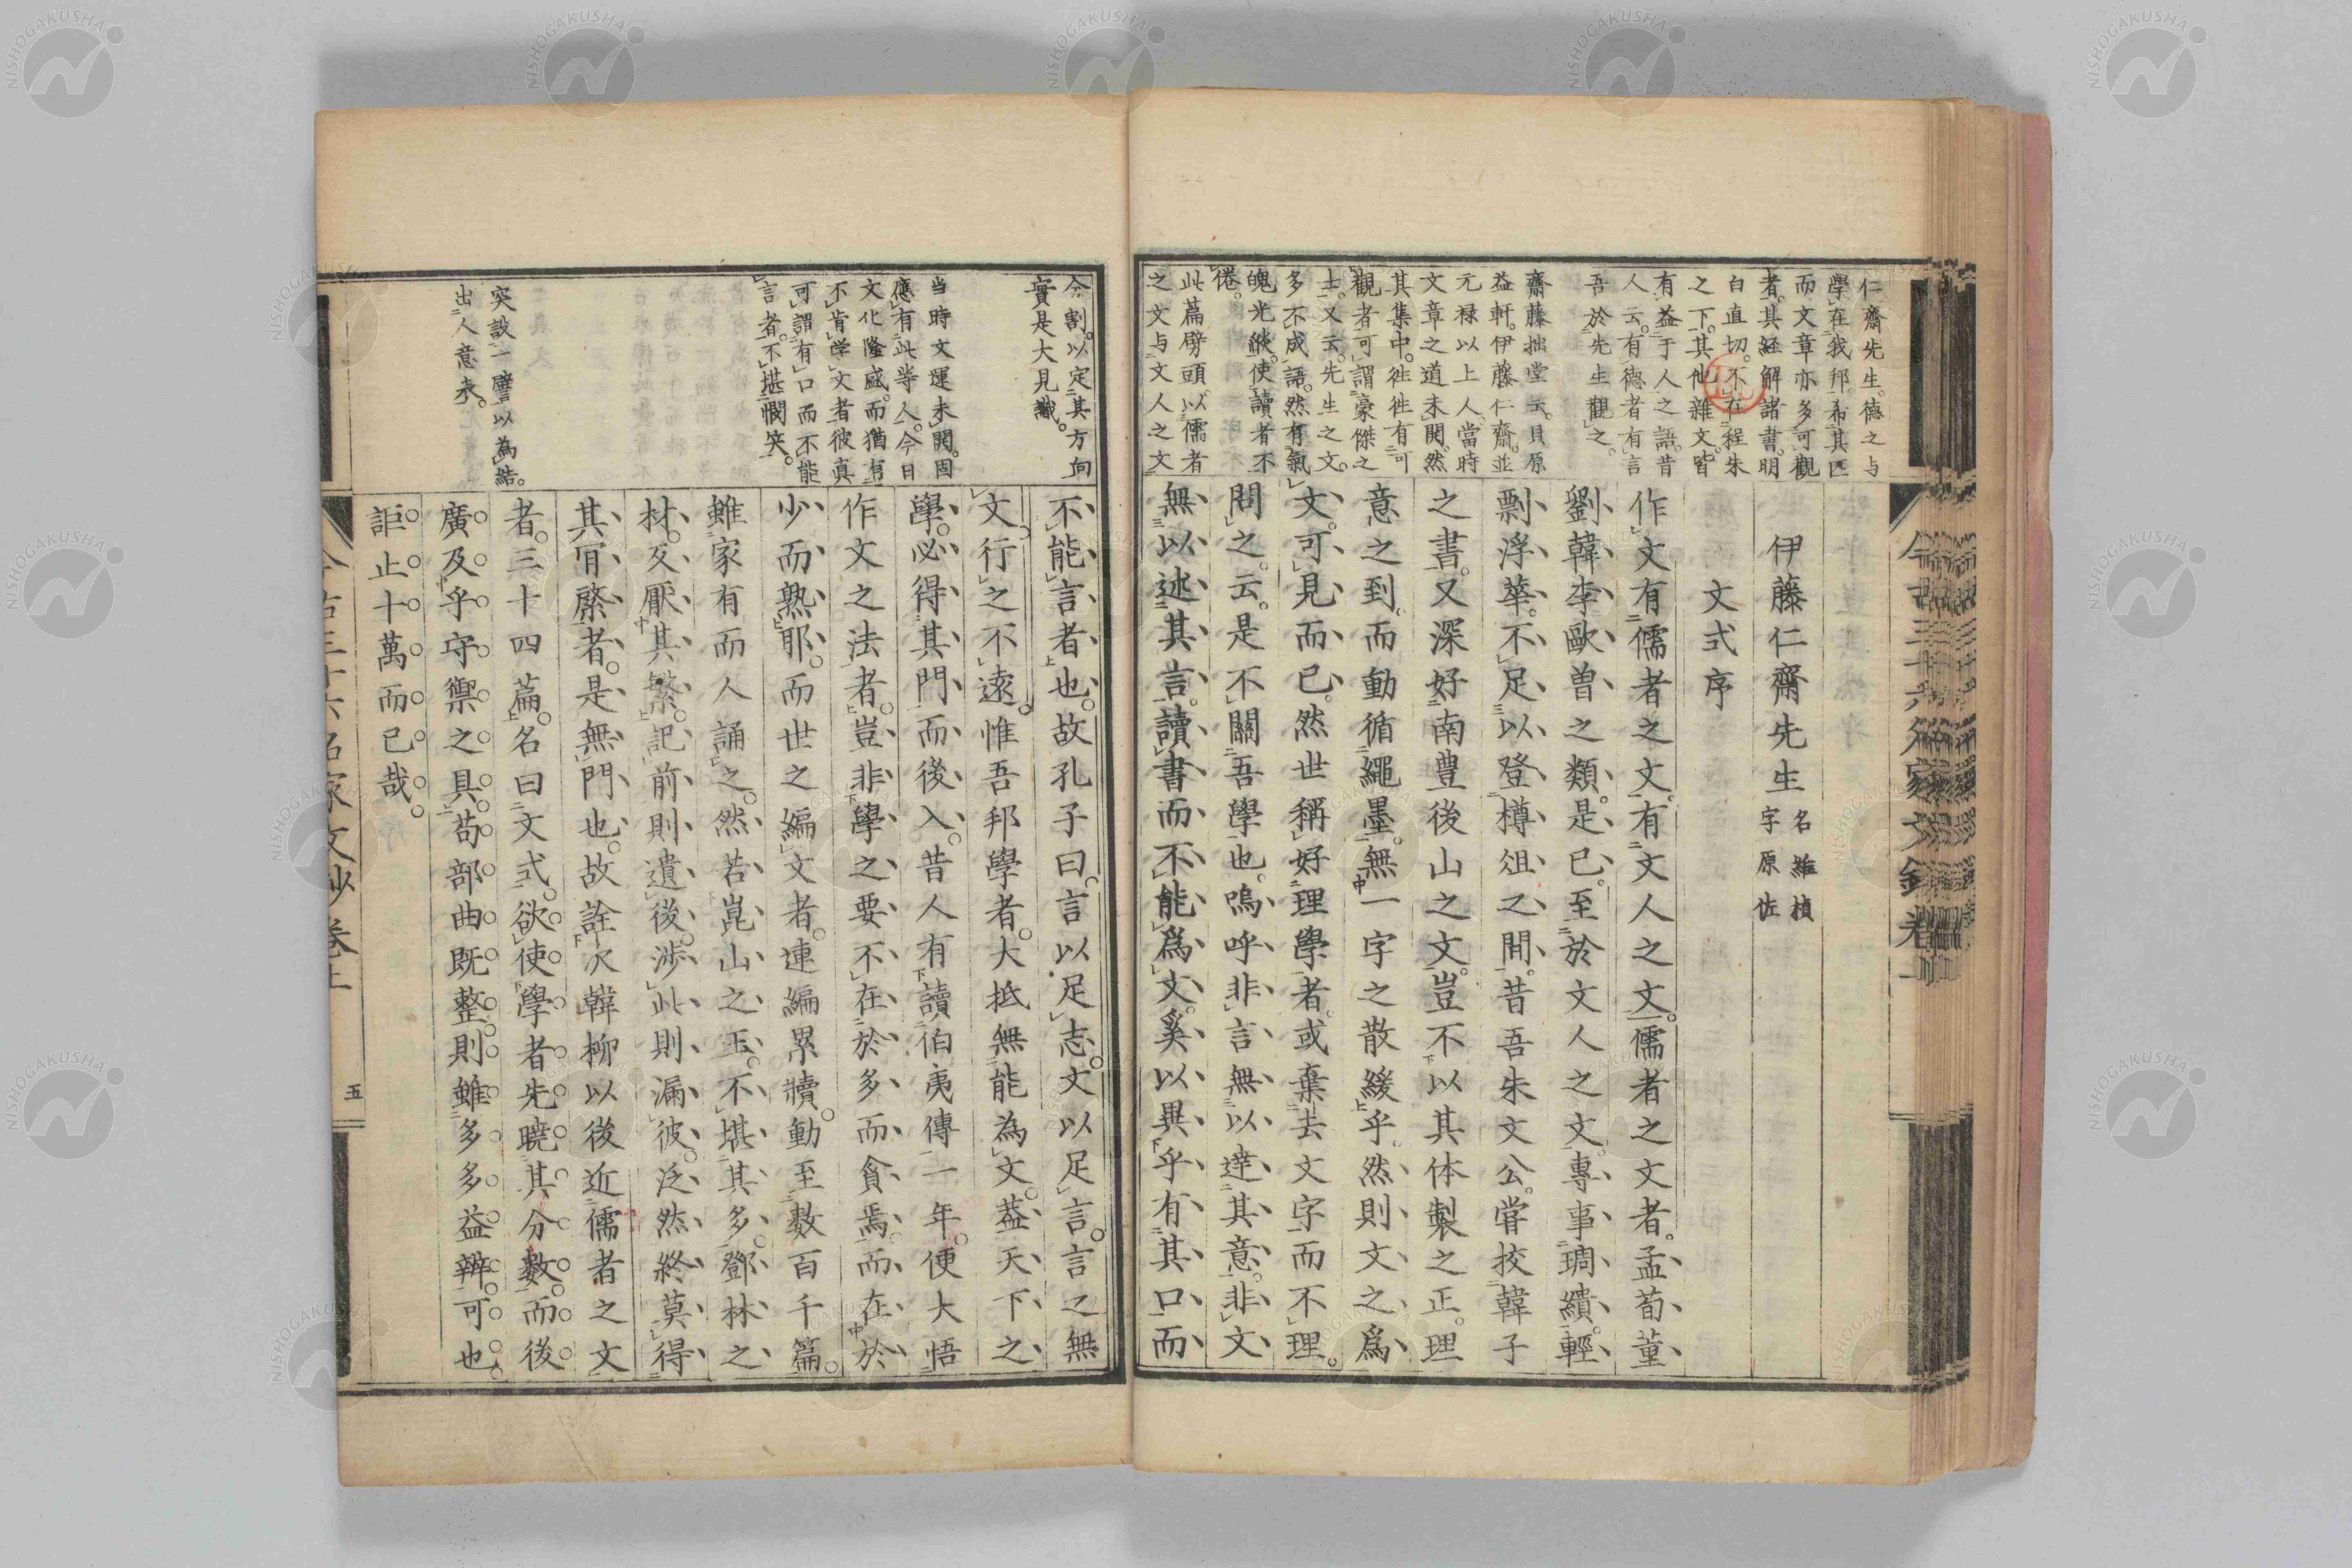 仁齋先生。德之与
學在我邦。希其匹
而文章亦多可觀
者。其經解諸書。明
白直切。不在程朱
之下。其他雜文。皆
有益于人之語。昔
人云。有德者有言
吾於先生觀之。
齋藤拙堂云。貝原
益軒。伊藤仁齋。並
元禄以上人。當時
文章之道未開。然
其集中。徃徃有可
觀者可謂豪傑之
士。又云。先生之文。
多不成語。然有氣
魄光燄。使讀者不
倦。
此篇劈頭。以儒者
之文与文人之文
伊藤仁齋先生 名維楨 字原佐
文式序
作文有儒者之文。有文人之文。儒者之文者。孟荀董
劉韓李歐曽之類。是已。至於文人之文。專事琱繢。輕
剽浮華。不足以登樽俎之間。昔吾朱文公。嘗挍韓子
之書。又深好南豊後山之文。豈不以其体製之正。理
意之到。而動循繩墨。無一字之散緩乎。然則文之爲
文。可見而已。然世稱好理學者。或棄去文字而不理。
問之。云。是不關吾學也。嗚呼非言無以達其意。非文
無以述其言。讀書而不能爲文。奚以異乎有其口而
今古三十六名家文鈔卷上
今割。以定其方向
實是大見識。
当時文運未開。固
應有此等人。今日
文化隆盛。而猶有
不肯学文者彼真
可謂有口而不能
言者。不堪憫笑。
突設一譬以為結。
出人意表。
不能言者也。故孔子曰。言以足志。文以足言。言之無
文。行之不遠。惟吾邦學者。大抵無能為文。蓋天下之
學。必得其門而後入。昔人有讀伯夷傳一年。便大悟
作文之法者。豈非學之要不在於多而貪焉。而在於
少而熟耶。而世之編文者。連編累牘。動至數百千篇。
雖家有而人誦之。然若崑山之玉。不堪其多。鄧林之
材。又厭其繁。記前則遺後。涉此則漏彼。泛然終莫得
其肎綮者。是無門也。故詮次韓柳以後近儒者之文
者。三十四篇。名曰文式。欲使學者先曉其分數。而後
廣及乎守禦之具。苟部曲既整。則雖多多益辨可也。
詎止十萬而已哉。
今古三十六名家文鈔卷上
五